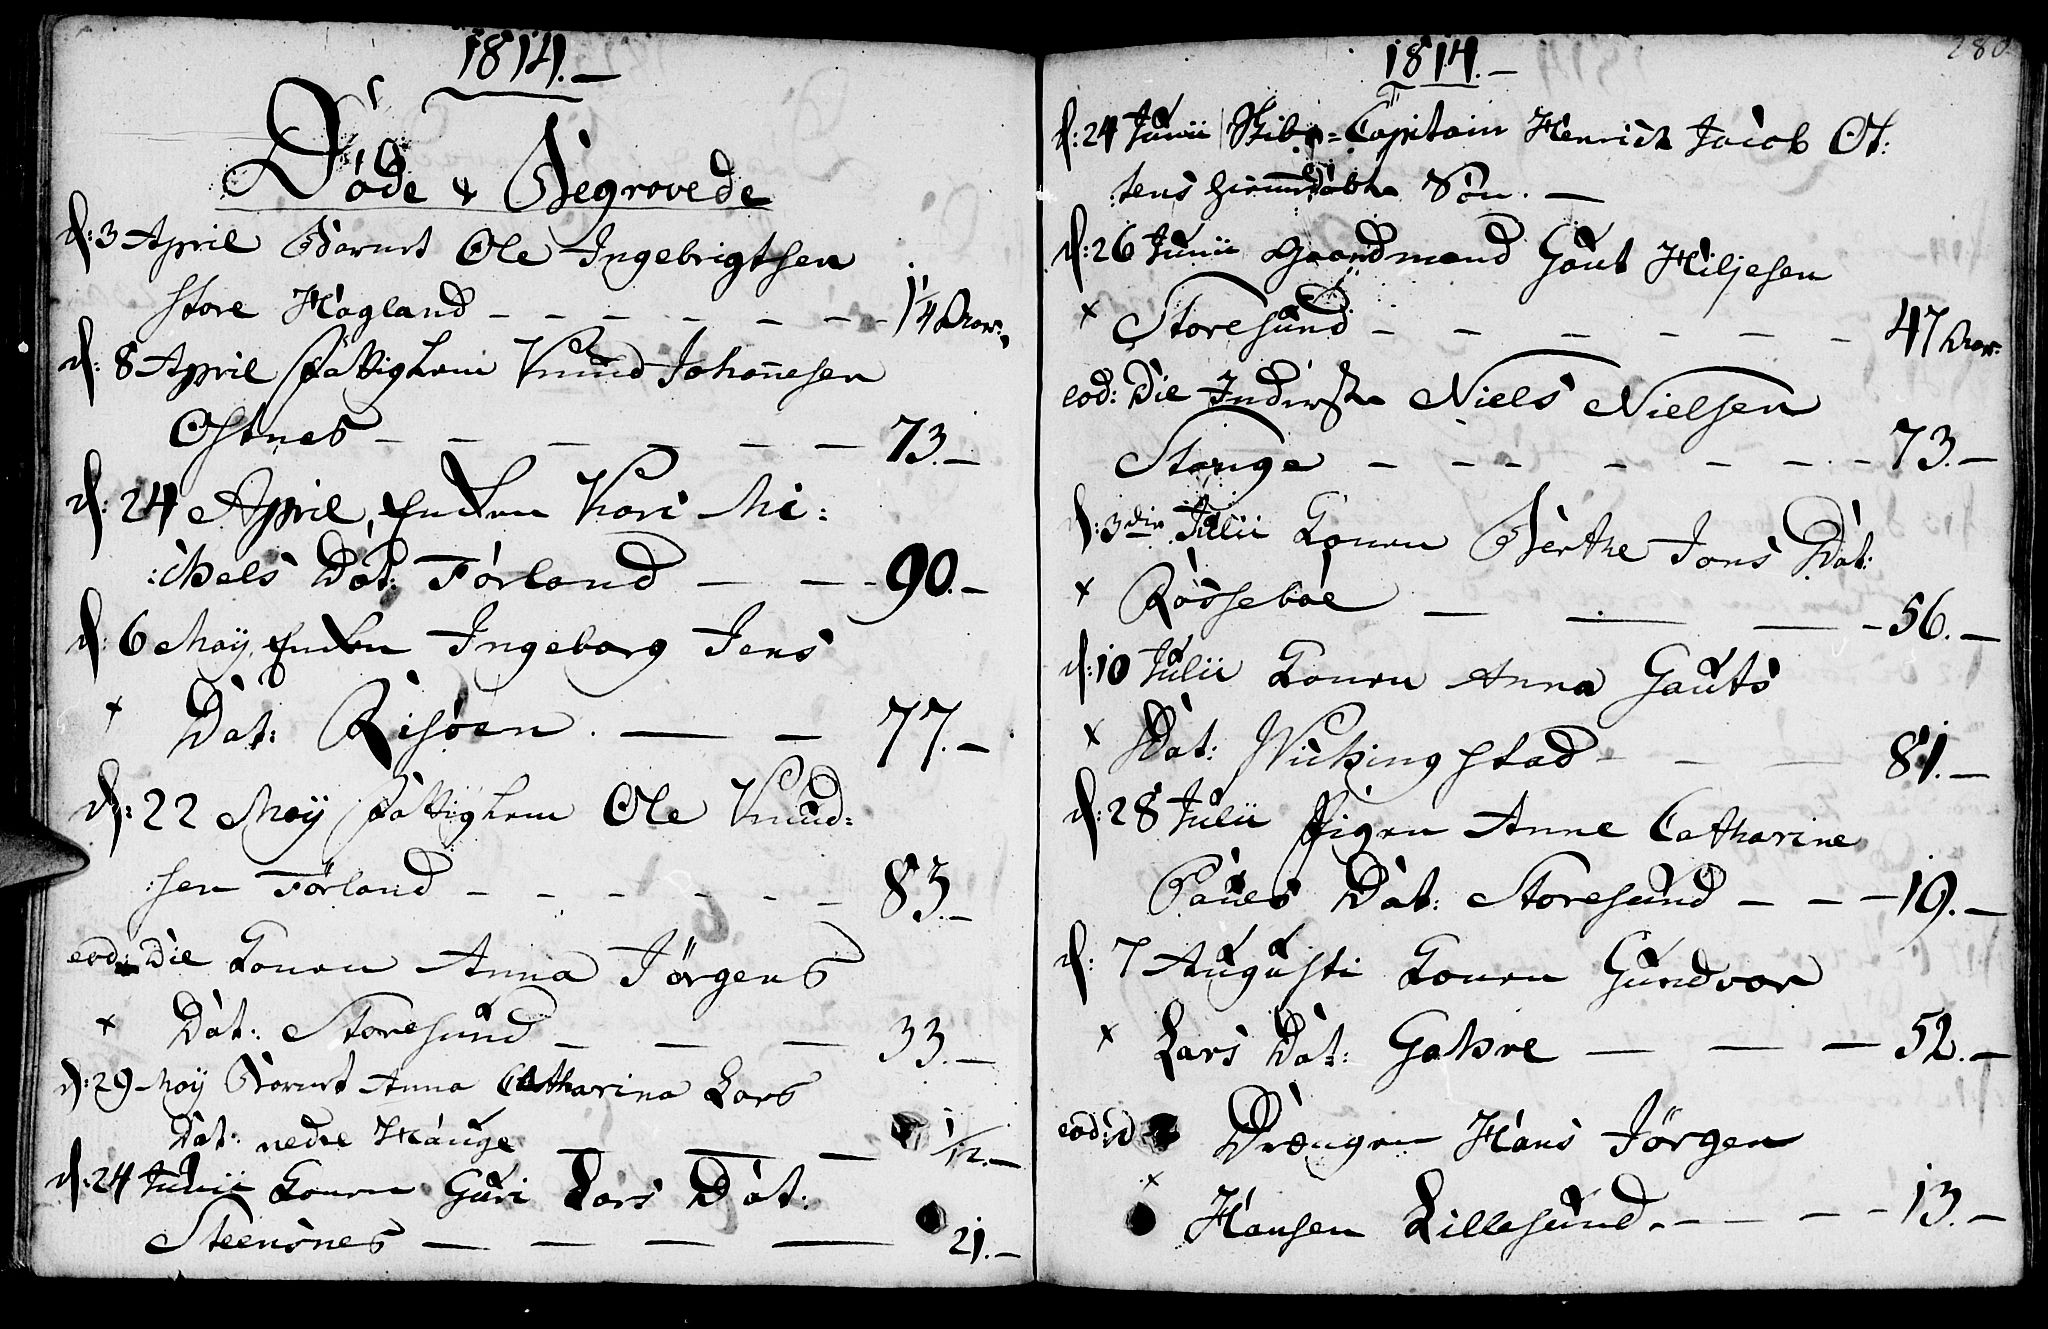 1814.—
Døde & Begravede
d: 3 April Barnet Ole Ingebrigtsen
store Hagland – – – – – – – 1/4 Aar.
d: 8 April fattiglem Knud Johannesen
Østnes – – – – – – 73.–
d: 24 April, Enken Kari Mi:
:chels Dat: Førland – – – 90.–
d: 6 May, Enken Ingeborg Jens
× Dat: Risøen. — – 77.–
d: 22 May fattiglem Ole Knud:
:sen Førland – – – – – – 83.–
eod: Die Konen Anna Jørgens
× Dat: Storesund – – – 33.–
d: 29 May Barnet Anna Catharina Lars
Dat: nedre Hauge – — – 1/12.–
d: 24 Junii Konen Guri Lars Dat:
Steensnes – – – — 21.–
1814.–
280
d: 24 Junii Skibs-Capitain Henrich Jacob Ot:
:tens hiemmedøbte Søn. –
d: 26 Junii Gaardmand Gaut Kiljesen
× Storesund – – – – – – 47 Aar.
eod: Die Inderste Niels Nielsen
Stange – – – – – – – 73.–
d: 3die Julii Konen Berthe Jons Dat:
× Rødseboe – — — – 56.–
d: 10 Julii Konen Anna Gauts
× Dat: Wichingstad – – — 81.–
d: 28 Julii Pigen Anne Catharine
Paues Dat: Storesund – – – 19.–
d: 7 Augusti Konen Gundvor
× Lars Dat: Gakre — – – 52.–
eod: d Drængen Hans Jørgen
× Hansen Lillesund. – – – – 13.–